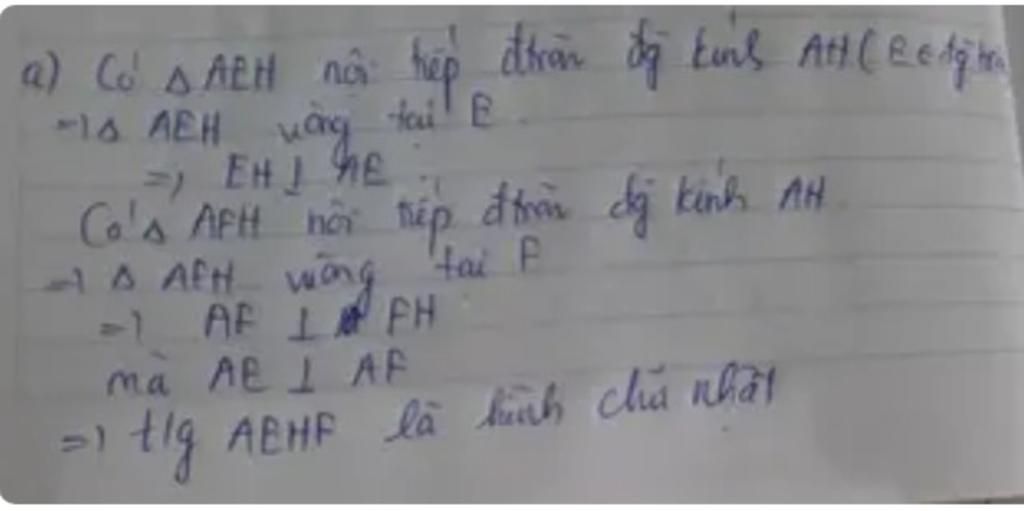 a) Có Δ AEH nội tiếp đtròn đg kính AH (E ∈ đg trò
=> Δ AEH vuông tại E.
=> EH ⊥ AE.
Có Δ AFH nội tiếp đtròn đg kính AH.
=> Δ AFH vuông tại F
=> AF ⊥ FH
mà AE ⊥ AF
=> t/g AEHF là hình chữ nhật